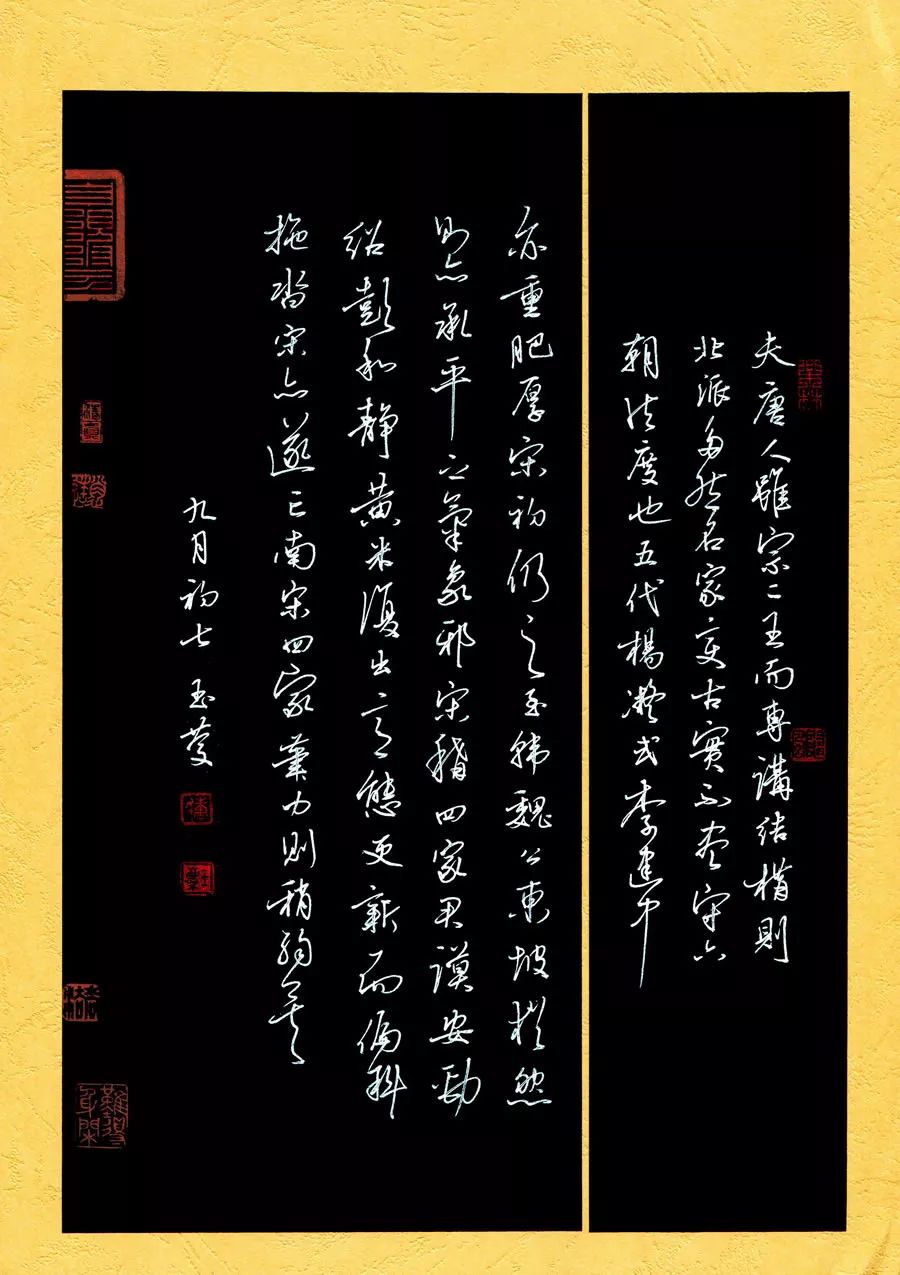 夫唐人雖宗二王而專講結構則
北派多然名家變古實不盡守六
朝法度也五代楊凝式李建中
亦重肥厚宋初仍之至韓魏公東坡猶然
則亦承平之氣象邪宋稱四家君謨安勁
紹彭和靜黃米復出意態更新而偏斜
拖沓宋亦遂亡南宋四家筆力則稍弱矣
九月初七 玉
難得身閑